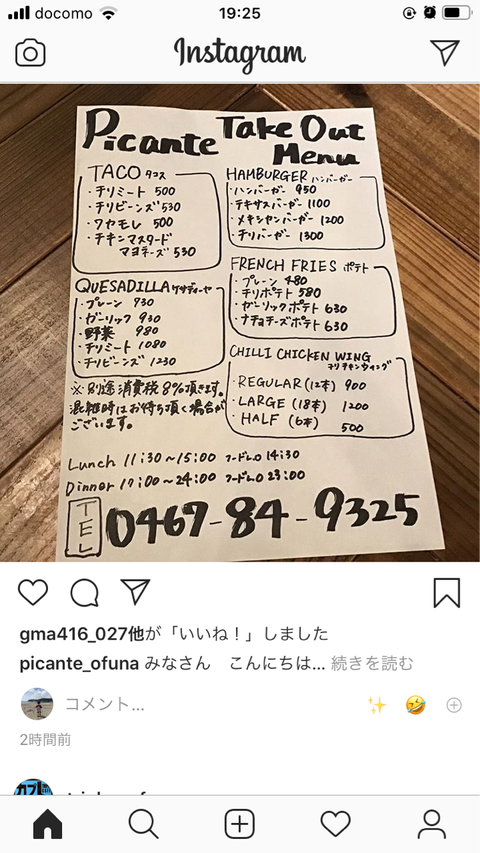 docomo 19:25
Instagram
Picante Take Out Menu
TACO タコス
・チリミート 500
・チリビーンズ 530
・ワカモレ 500
・チキンマスタード
マヨネーズ 530
HAMBURGER ハンバーガー
・ハンバーガー 950
・テキサスバーガー 1100
・メキシャンバーガー 1200
・チリバーガー 1300
QUESADILLA ケサディーヤ
・プレーン 730
・ガーリック 930
・野菜 980
・チリミート 1080
・チリビーンズ 1230
FRENCH FRIES ポテト
・プレーン 480
・チリポテト 580
・ガーリックポテト 630
・ナチョチーズポテト 630
CHILLI CHICKEN WING
チリチキンウィング
・REGULAR (12本) 900
・LARGE (18本) 1200
・HALF (6本) 500
※別途消費税8%頂きます。
混雑時はお待ち頂く場合が
ございます。
Lunch 11:30~15:00 フードL.O 14:30
Dinner 17:00~24:00 フードL.O 23:00
TEL 0467-84-9325
gma416_027他が「いいね！」しました
picante_ofuna みなさん　こんにちは... 続きを読む
コメント...
2時間前